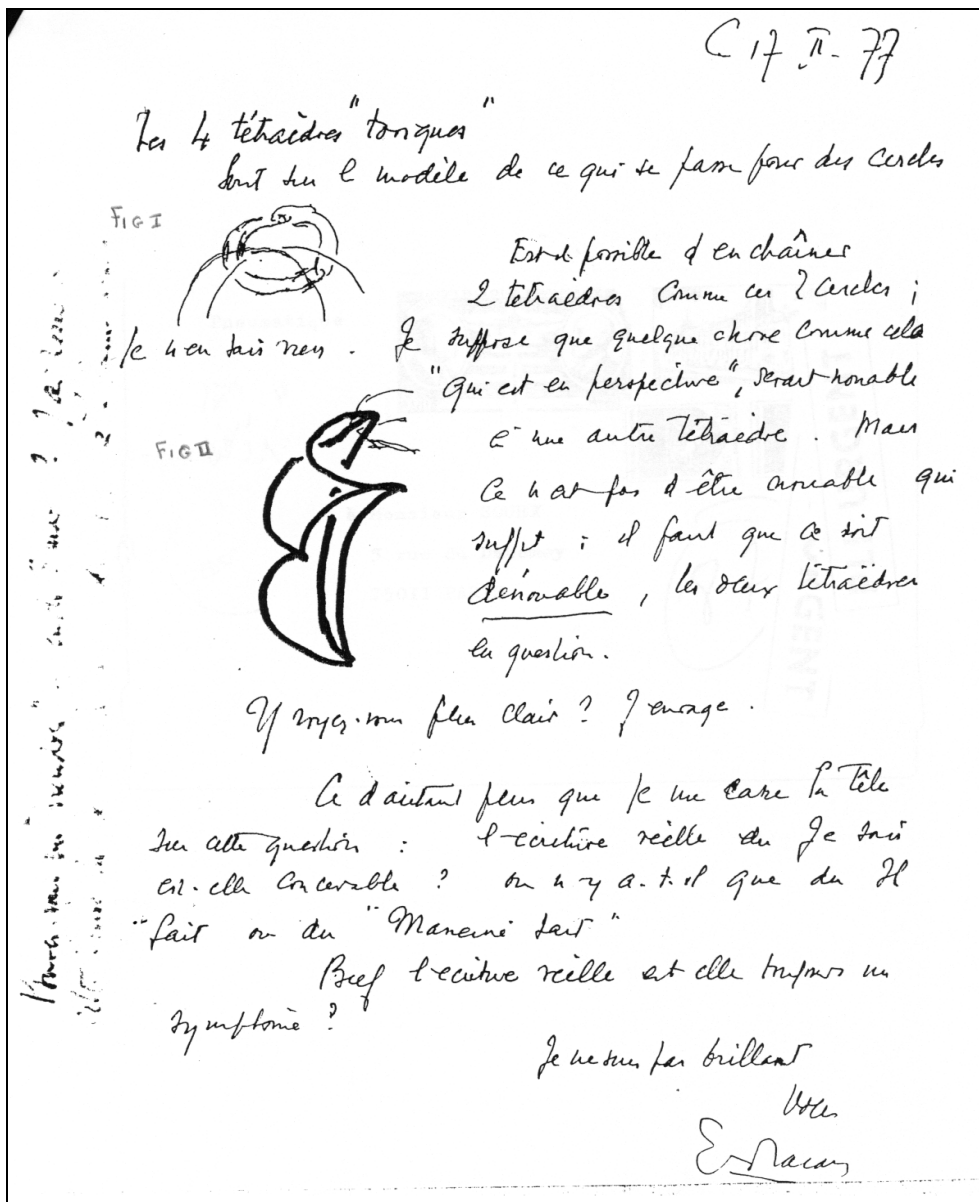 C 17 II. 77
Les 4 tétraèdres "toriques"
sont sur l modèle de ce qui se passe pour des cercles
FIG I
Est-il possible d'enchaîner
2 tétraèdres comme ces 2 cercles ;
Je n'en sais rien. Je suppose que quelque chose comme cela
"qui est en perspective", serait nouable
à une autre tétraèdre. Mais
FIG II
ce n'est pas d'être nouable qui
suffit : il faut que ce soit
dénouable, les deux tétraèdres
en question.
Y voyez-vous plus clair ? J'enrage.
Ce d'autant plus que je me casse la tête
sur cette question : l'écriture réelle du Je sais
est-elle concevable ? ou n'y a-t-il que du Il
sait ou du "Maneine sait"
Bref l'écriture réelle est elle toujours un
symptome ?
Je ne suis pas brillant
Votre